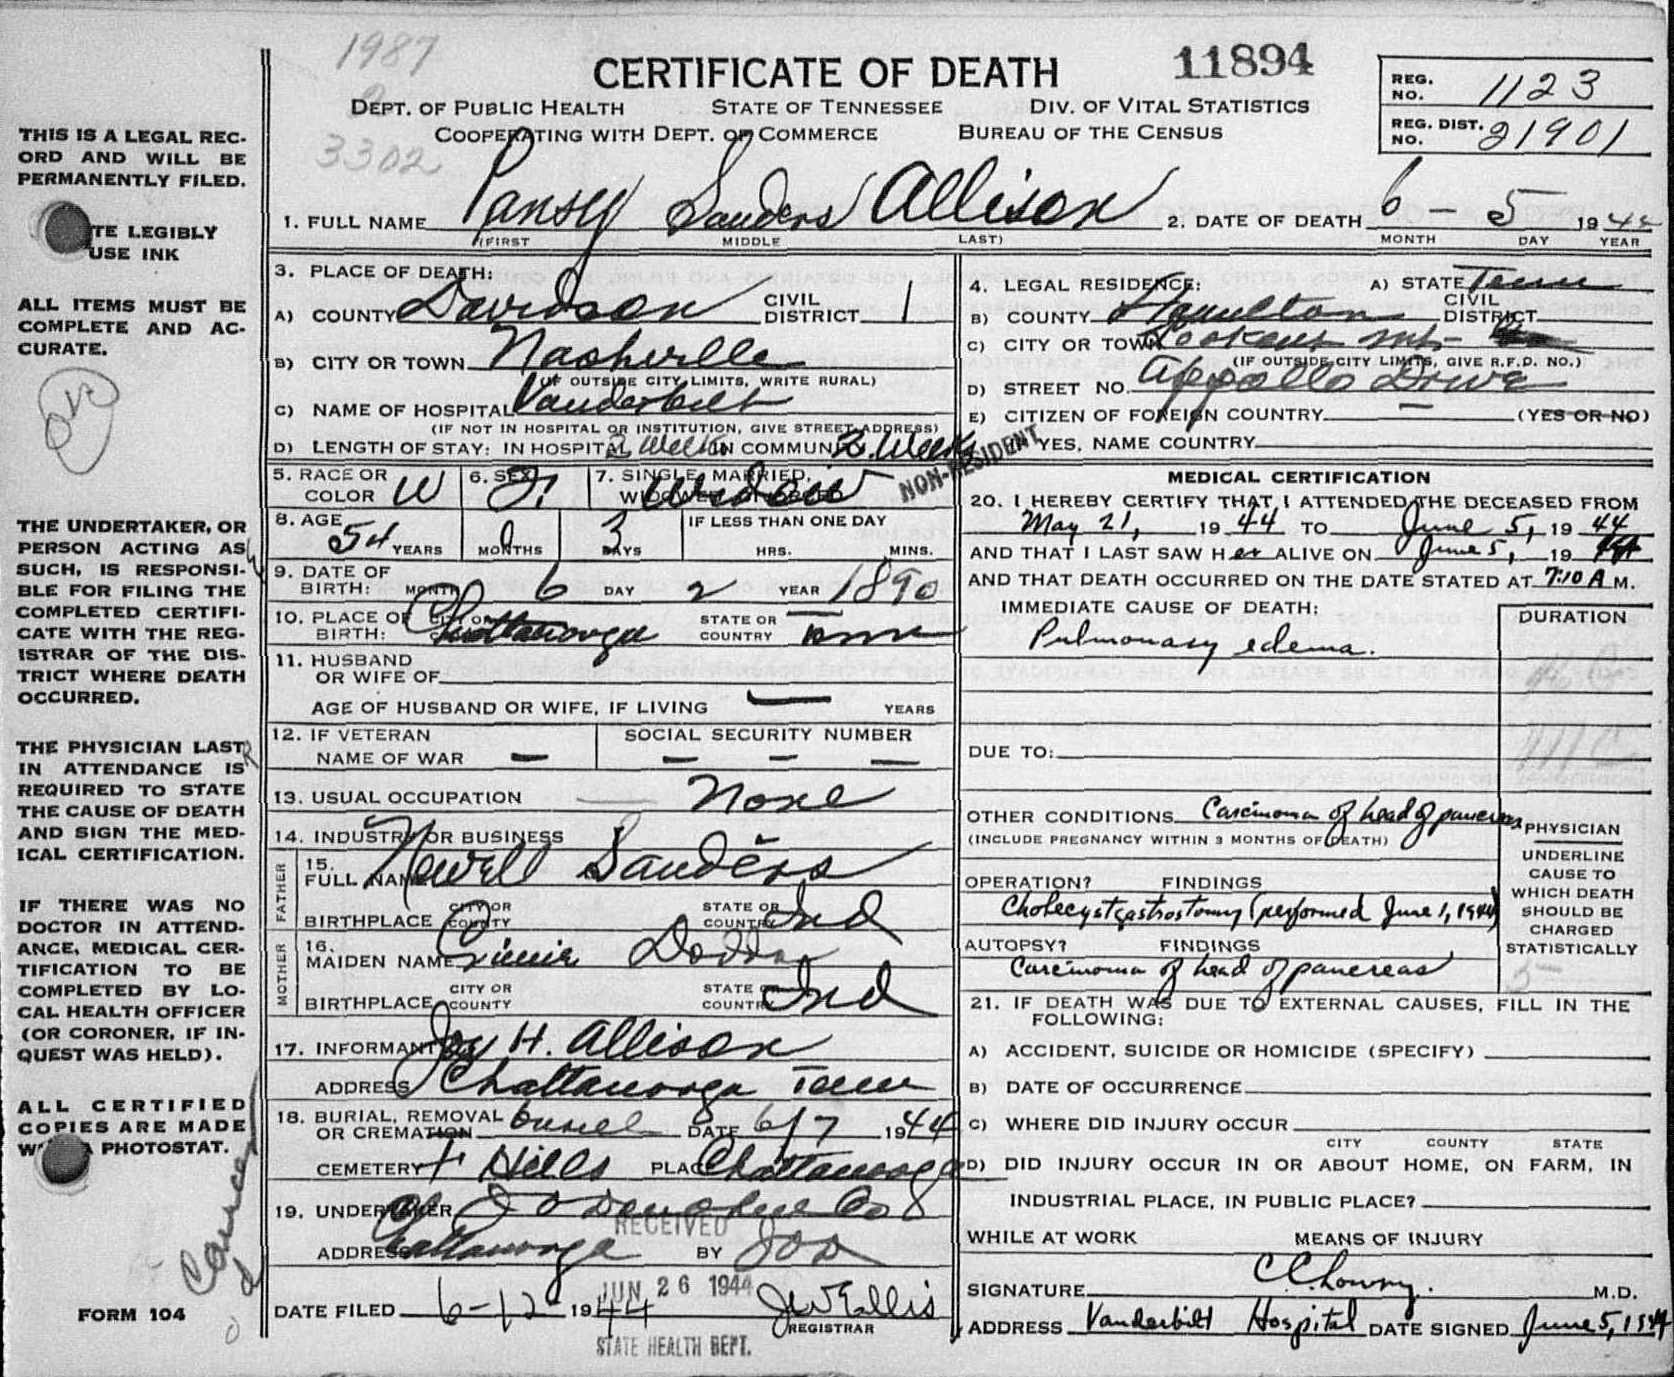 1987
3302
CERTIFICATE OF DEATH
11894
DEPT. OF PUBLIC HEALTH STATE OF TENNESSEE DIV. OF VITAL STATISTICS
COOPERATING WITH DEPT. OF COMMERCE BUREAU OF THE CENSUS
REG. NO. 1123
REG. DIST. NO. 21901
THIS IS A LEGAL REC-
ORD AND WILL BE
PERMANENTLY FILED.
TE LEGIBLY
USE INK
ALL ITEMS MUST BE
COMPLETE AND AC-
CURATE.
THE UNDERTAKER, OR
PERSON ACTING AS
SUCH, IS RESPONSI-
BLE FOR FILING THE
COMPLETED CERTIFI-
CATE WITH THE REG-
ISTRAR OF THE DIS-
TRICT WHERE DEATH
OCCURRED.
THE PHYSICIAN LAST
IN ATTENDANCE IS
REQUIRED TO STATE
THE CAUSE OF DEATH
AND SIGN THE MED-
ICAL CERTIFICATION.
IF THERE WAS NO
DOCTOR IN ATTEND-
ANCE, MEDICAL CER-
TIFICATION TO BE
COMPLETED BY LO-
CAL HEALTH OFFICER
(OR CORONER, IF IN-
QUEST WAS HELD).
ALL CERTIFIED
COPIES ARE MADE
PHOTOSTAT.
Cancer
FORM 104
1. FULL NAME Pansy Sanders Allison 2. DATE OF DEATH 6 - 5 1944
(FIRST MIDDLE LAST) MONTH DAY YEAR
3. PLACE OF DEATH:
A) COUNTY Davidson CIVIL DISTRICT 1
B) CITY OR TOWN Nashville
(IF OUTSIDE CITY LIMITS, WRITE RURAL)
C) NAME OF HOSPITAL Vanderbilt
(IF NOT IN HOSPITAL OR INSTITUTION, GIVE STREET ADDRESS)
D) LENGTH OF STAY: IN HOSPITAL 2 Weeks IN COMMUNITY 2 Weeks
NON-RESIDENT
4. LEGAL RESIDENCE: A) STATE Tenn
B) COUNTY Hamilton CIVIL DISTRICT
C) CITY OR TOWN Lookout Mt-
(IF OUTSIDE CITY LIMITS, GIVE R.F.D. NO.)
D) STREET NO. Appollo Drive
E) CITIZEN OF FOREIGN COUNTRY — (YES OR NO)
IF YES, NAME COUNTRY
5. RACE OR COLOR W 6. SEX F. 7. SINGLE, MARRIED, WIDOWED, DIVORCED Widow
8. AGE 54 YEARS 0 MONTHS 3 DAYS IF LESS THAN ONE DAY HRS. MINS.
9. DATE OF BIRTH: MONTH 6 DAY 2 YEAR 1890
10. PLACE OF BIRTH: CITY OR COUNTY Chattanooga STATE OR COUNTRY Tenn
11. HUSBAND OR WIFE OF
AGE OF HUSBAND OR WIFE, IF LIVING — YEARS
12. IF VETERAN NAME OF WAR — SOCIAL SECURITY NUMBER — — —
13. USUAL OCCUPATION None
14. INDUSTRY OR BUSINESS
FATHER
15. FULL NAME Newell Sanders
BIRTHPLACE CITY OR COUNTY STATE OR COUNTRY Ind
MOTHER
16. MAIDEN NAME Dodds
BIRTHPLACE CITY OR COUNTY STATE OR COUNTRY Ind
17. INFORMANT Joy H. Allison
ADDRESS Chattanooga Tenn
18. BURIAL, REMOVAL OR CREMATION burial DATE 6/7 1944
CEMETERY F Hills PLACE Chattanooga
19. UNDERTAKER Co
ADDRESS Chattanooga
RECEIVED
BY
JUN 26 1944
STATE HEALTH DEPT.
DATE FILED 6-12- 1944 J W Ellis
REGISTRAR
MEDICAL CERTIFICATION
20. I HEREBY CERTIFY THAT I ATTENDED THE DECEASED FROM
May 21, 1944 TO June 5, 1944
AND THAT I LAST SAW Her ALIVE ON June 5, 1944
AND THAT DEATH OCCURRED ON THE DATE STATED AT 7:10 A M.
IMMEDIATE CAUSE OF DEATH: DURATION
Pulmonary edema.
DUE TO:
OTHER CONDITIONS Carcinoma of head of pancreas
(INCLUDE PREGNANCY WITHIN 3 MONTHS OF DEATH)
PHYSICIAN
UNDERLINE
CAUSE TO
WHICH DEATH
SHOULD BE
CHARGED
STATISTICALLY
OPERATION? FINDINGS
Cholecystgastrostomy (performed June 1, 1944)
AUTOPSY? FINDINGS
Carcinoma of head of pancreas
21. IF DEATH WAS DUE TO EXTERNAL CAUSES, FILL IN THE
FOLLOWING:
A) ACCIDENT, SUICIDE OR HOMICIDE (SPECIFY)
B) DATE OF OCCURRENCE
C) WHERE DID INJURY OCCUR
CITY COUNTY STATE
D) DID INJURY OCCUR IN OR ABOUT HOME, ON FARM, IN
INDUSTRIAL PLACE, IN PUBLIC PLACE?
WHILE AT WORK MEANS OF INJURY
SIGNATURE M.D.
ADDRESS Vanderbilt Hospital DATE SIGNED June 5, 1944